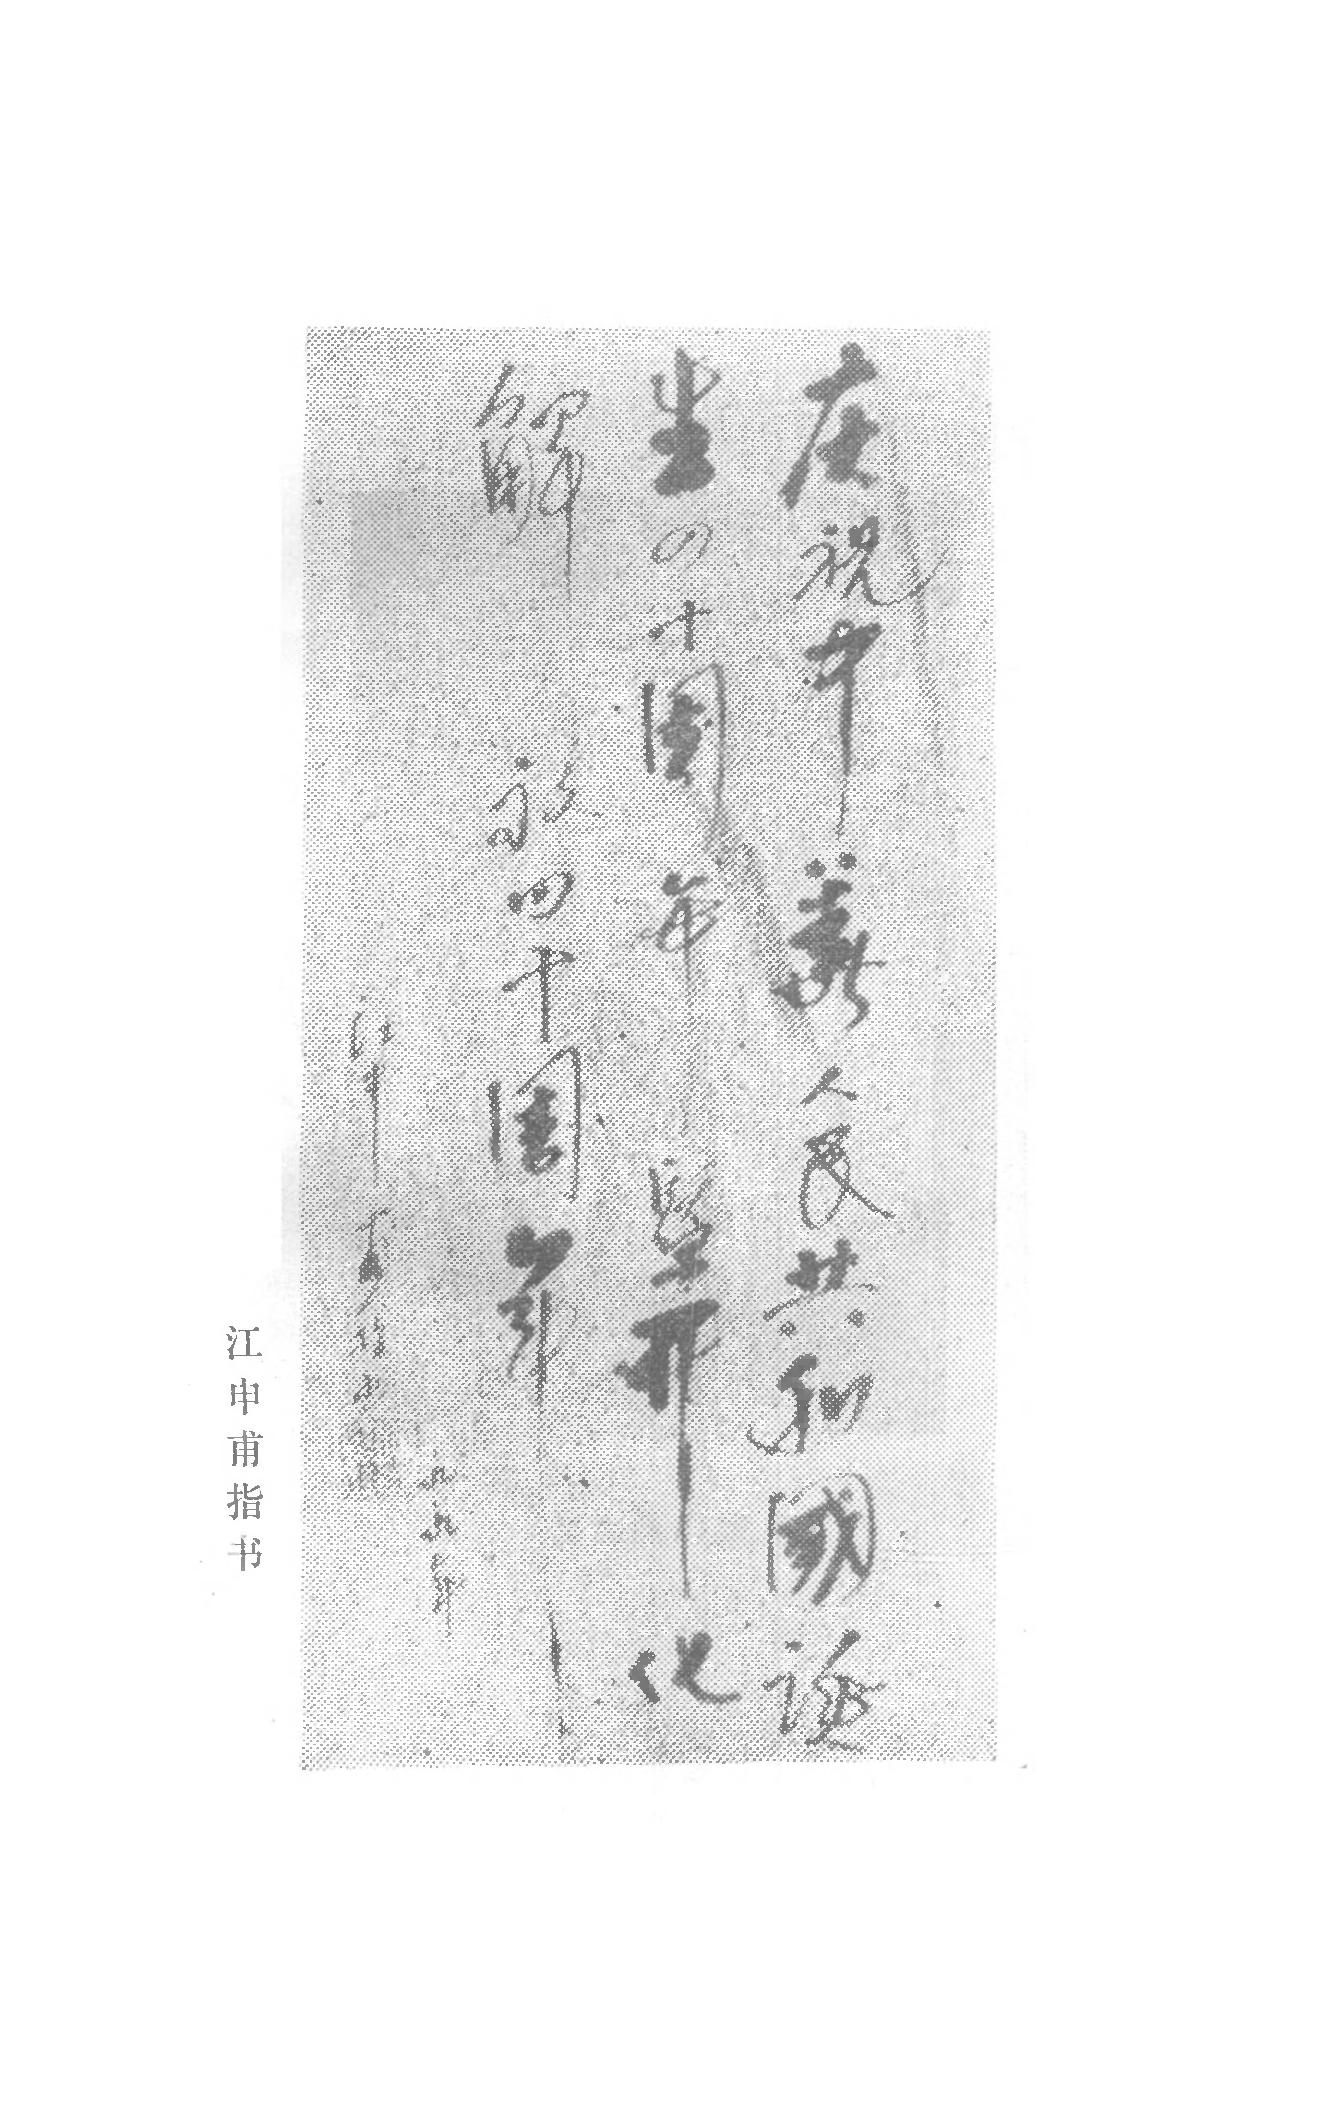 庆祝中华人民共和国诞
生四十周年暨开化
解放四十周年
一九八九年
江申甫
江申甫指书